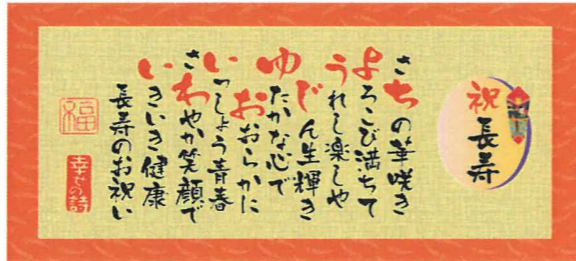 祝
長寿
さちの華咲き
よろこび満ちて
うれし楽しや
じん生輝き
ゆたかな心で
おおらかに
いっしょう青春
さわやか笑顔で
いきいき健康
長寿のお祝い
福
幸せの詩